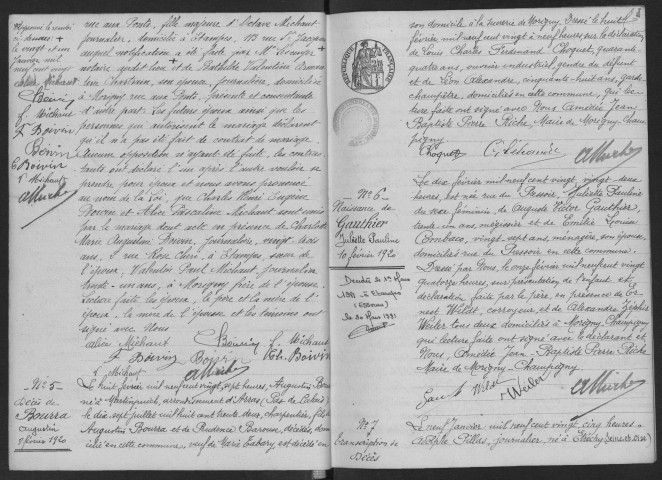 rue aux Ponts, fille majeure d'Octave Michaut
journalier, domicilié à Étampes, 113 rue St Jacques
auquel notification a été faite par Me
notaire audit lieu et de Mathilde Valentine
Chartrain, son épouse, journalière, domiciliée
à Morigny rue aux Ponts, présente et consentante
d'autre part. Les futurs époux ainsi que les
personnes qui autorisent le mariage déclarent
qu'il n'a pas été fait de contrat de mariage.
Aucune opposition n'ayant été faite, les contrac-
tants ont déclaré l'un après l'autre vouloir se
prendre pour époux et nous avons prononcé
au nom de la Loi, que Charles Henri Eugène
Boivin et Alice Pascaline Michaut sont unis
par le mariage dont acte en présence de Charlotte
Marie Augustine Boivin, journalière, vingt-trois
ans, rue Rose Chéri, à Étampes, sœur de
l'époux, Valentin Paul Michaut, journalier
ans, à Morigny, frère de l'épouse.
Lecture faite les époux, le père et la mère de
l'époux, la mère de l'épouse et les témoins ont
signé avec Nous
Alice Michaut Boivin f. Michaut
F Boivin Boivin Ch. Boivin
Michaut
No 5
Décès de
Bourra
Augustin
8 février 1920
Le huit février mil neuf cent vingt, sept heures, Augustin Bourra
né à Martinpuich, arrondissement d'Arras (Pas de Calais)
le dix sept juillet mil huit cent trente deux, charpentier, fils de
Augustin Bourra et de Prudence Baroux, décédés, domi-
cilié en cette commune, veuf de Marie Tabary est décédé en
son domicile, à la tuverie de Morigny. Dressé le huit
février mil neuf cent vingt neuf heures sur la déclaration
de Louis Charles Ferdinand Choquet, quarante-
quatre ans, ouvrier industriel, gendre du défunt
et de Léon Alexandre, cinquante-huit ans, garde-
champêtre, domiciliés en cette commune, qui lec-
ture faite ont signé avec Nous Amédée Jean
Baptiste Pierre Riché, Maire de Morigny-Cham-
pigny
Choquet
No 6
Naissance de
Gauthier
Juliette Pauline
10 février 1920
Le dix février mil neuf cent vingt vingt-deux
heures, est née rue du Pressoir, Juliette Pauline
du sexe féminin, de Auguste Victor Gauthier,
trente-un ans, mégissier et de Emilie Louise
Combaco, vingt-sept ans, ménagère, son épouse
domiciliés rue du Pressoir en cette commune.
Dressé par Nous, le onze février mil neuf cent vingt
quatorze heures, sur présentation de l'enfant et
déclaration faite par le père, en présence de Er-
nest Wildt, corroyeur et de Alexandre Zéphir
Weiler tous deux domiciliés à Morigny-Champigny
qui lecture faite ont signé avec le déclarant et
Nous, Amédée Jean-Baptiste Pierre Riché
Maire de Morigny-Champigny
Gauthier Wildt Weiler
No 7
Transcription de
Décès
Le neuf Janvier mil neuf cent vingt cinq heures